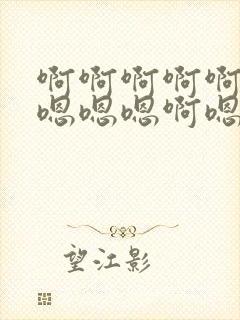 啊啊啊啊啊
嗯嗯嗯啊嗯
望江影